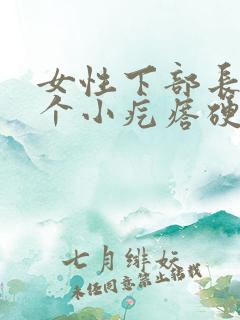 女性下部長
个小疙瘩硬
七月緋妘
未任同意禁止转载